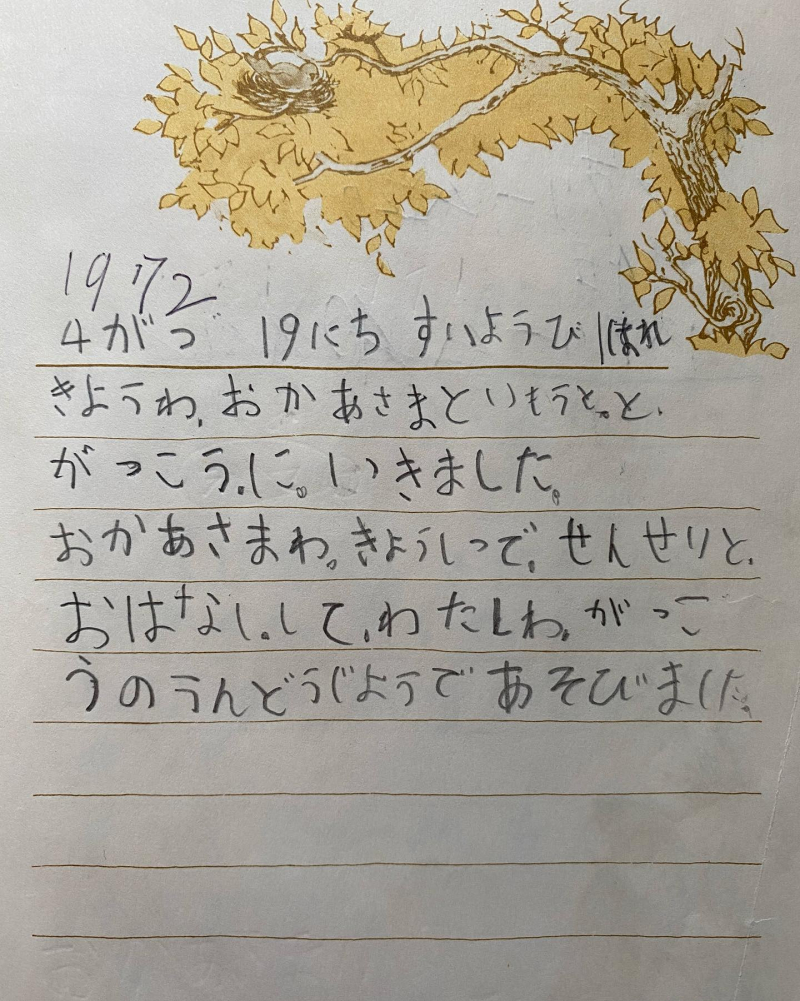 1972
4がつ 19にち すいようび はれ
きようわ、おかあさまといもうと。と、
がっこう、に。いきました。
おかあさまわ。きょうしつで、せんせいと、
おはなし、して、わたしわ、がっこ
うのうんどうじようであそびました。